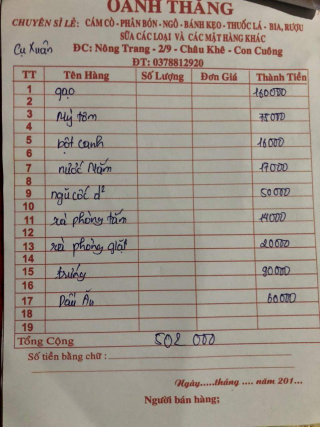 OANH THẮNG
CHUYÊN SỈ LẺ: CÁM CÒ - PHÂN BÓN - NGÔ - BÁNH KẸO - THUỐC LÁ - BIA, RƯỢU
SỮA CÁC LOẠI VÀ CÁC MẶT HÀNG KHÁC
Cụ Xuân
ĐC: Nông Trang - 2/9 - Châu Khê - Con Cuông
ĐT: 0378812920
TT Tên Hàng Số Lượng Đơn Giá Thành Tiền
1 gạo 160000
2
3 Mỳ tôm 75000
4
5 bột canh 16000
6
7 nước Mắm 17000
8
9 ngũ cốc d² 50000
10
11 xà phòng tắm 14000
12
13 xà phòng giặt 20000
14
15 trứng 90000
16
17 Dầu Ăn 60000
18
19
Tổng Cộng 502 000
Số tiền bằng chữ :
Ngày.....tháng .... năm 201...
Người bán hàng;